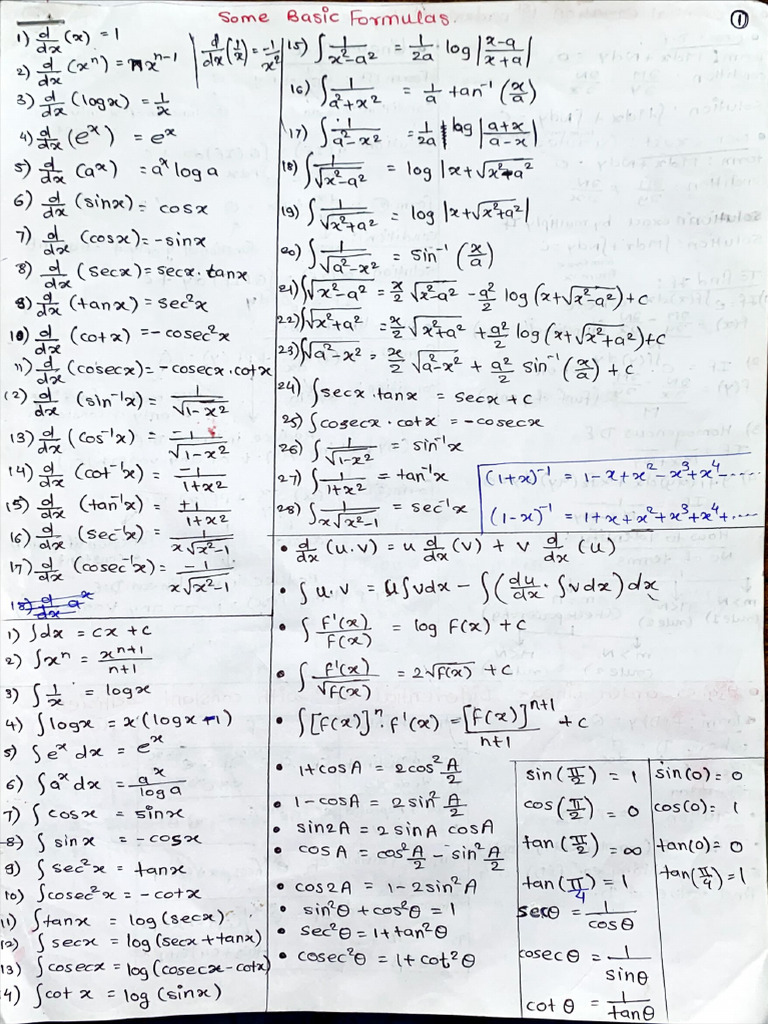 Some Basic Formulas.
①
1) d/dx (x) = 1
2) d/dx (xⁿ) = n xⁿ⁻¹ | d/dx (1/x) = -1/x²
3) d/dx (log x) = 1/x
4) d/dx (eˣ) = eˣ
5) d/dx (aˣ) = aˣ log a
6) d/dx (sinx) = cosx
7) d/dx (cosx) = -sinx
8) d/dx (secx) = secx · tanx
9) d/dx (tanx) = sec²x
10) d/dx (cotx) = -cosec²x
11) d/dx (cosecx) = -cosecx · cotx
12) d/dx (sin⁻¹x) = 1/√(1-x²)
13) d/dx (cos⁻¹x) = -1/√(1-x²)
14) d/dx (cot⁻¹x) = -1/(1+x²)
15) d/dx (tan⁻¹x) = +1/(1+x²)
16) d/dx (sec⁻¹x) = 1/(x√(x²-1))
17) d/dx (cosec⁻¹x) = -1/(x√(x²-1))
18) d/dx aˣ
1) ∫dx = cx + c
2) ∫xⁿ = xⁿ⁺¹/(n+1)
3) ∫1/x = logx
4) ∫logx = x(logx-1)
5) ∫eˣ dx = eˣ
6) ∫aˣ dx = aˣ/log a
7) ∫cosx = sinx
8) ∫sinx = -cosx
9) ∫sec²x = tanx
10) ∫cosec²x = -cotx
11) ∫tanx = log(secx)
12) ∫secx = log(secx + tanx)
13) ∫cosecx = log(cosecx - cotx)
4) ∫cot x = log (sinx)
15) ∫1/(x²-a²) = 1/2a · log |(x-a)/(x+a)|
16) ∫1/(a²+x²) = 1/a tan⁻¹ (x/a)
17) ∫1/(a²-x²) = 1/2a log |(a+x)/(a-x)|
18) ∫1/√(x²-a²) = log |x+√(x²-a²)
19) ∫1/√(x²+a²) = log |x+√(x²+a²)|
20) ∫1/√(a²-x²) = sin⁻¹ (x/a)
21) ∫√(x²-a²) = x/2 √(x²-a²) - a²/2 log (x+√(x²-a²)) + c
22) ∫√(x²+a²) = x/2 √(x²+a²) + a²/2 log (x+√(x²+a²)) + c
23) ∫√(a²-x²) = x/2 √(a²-x²) + a²/2 sin⁻¹ (x/a) + c
24) ∫secx · tanx = secx + c
25) ∫cosecx · cotx = -cosecx
26) ∫1/√(1-x²) = sin⁻¹x
27) ∫1/(1+x²) = tan⁻¹x
28) ∫1/(x√(x²-1)) = sec⁻¹x
(1+x)⁻¹ = 1-x+x²-x³+x⁴......
(1-x)⁻¹ = 1+x+x²+x³+x⁴+....
• d/dx (u.v) = u d/dx (v) + v d/dx (u)
• ∫u.v = u∫vdx - ∫(du/dx · ∫vdx) dx
• ∫f'(x)/f(x) = log f(x) + c
• ∫f'(x)/√f(x) = 2√f(x) + c
• ∫[f(x)]ⁿ · f'(x) = [f(x)]ⁿ⁺¹/(n+1) + c
• 1+cosA = 2cos² A/2
• 1-cosA = 2sin² A/2
• sin2A = 2 sinA cosA
• cosA = cos² A/2 - sin² A/2
• cos2A = 1-2sin²A
• sin²θ + cos²θ = 1
• sec²θ = 1+tan²θ
• cosec²θ = 1+cot²θ
sin(π/2) = 1
cos(π/2) = 0
tan(π/2) = ∞
tan(π/4) = 1
secθ = 1/cosθ
cosecθ = 1/sinθ
cotθ = 1/tanθ
sin(0) = 0
cos(0) = 1
tan(0) = 0
tan(π/4) = 1